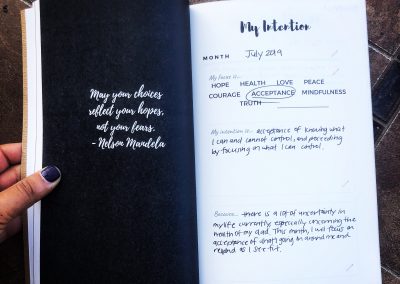 May your choices
reflect your hopes,
not your fears.
- Nelson Mandela
My Intention
MONTH July 2019
My focus is...
HOPE HEALTH LOVE PEACE
COURAGE ACCEPTANCE MINDFULNESS
TRUTH
My intention is... acceptance of knowing what
I can and cannot control, and proceeding
by focusing on what I can control.
Because... there is a lot of uncertainty in
my life currently, especially concerning the
health of my dad. This month, I will focus on
acceptance of what's going on around me and
respond as I see fit.